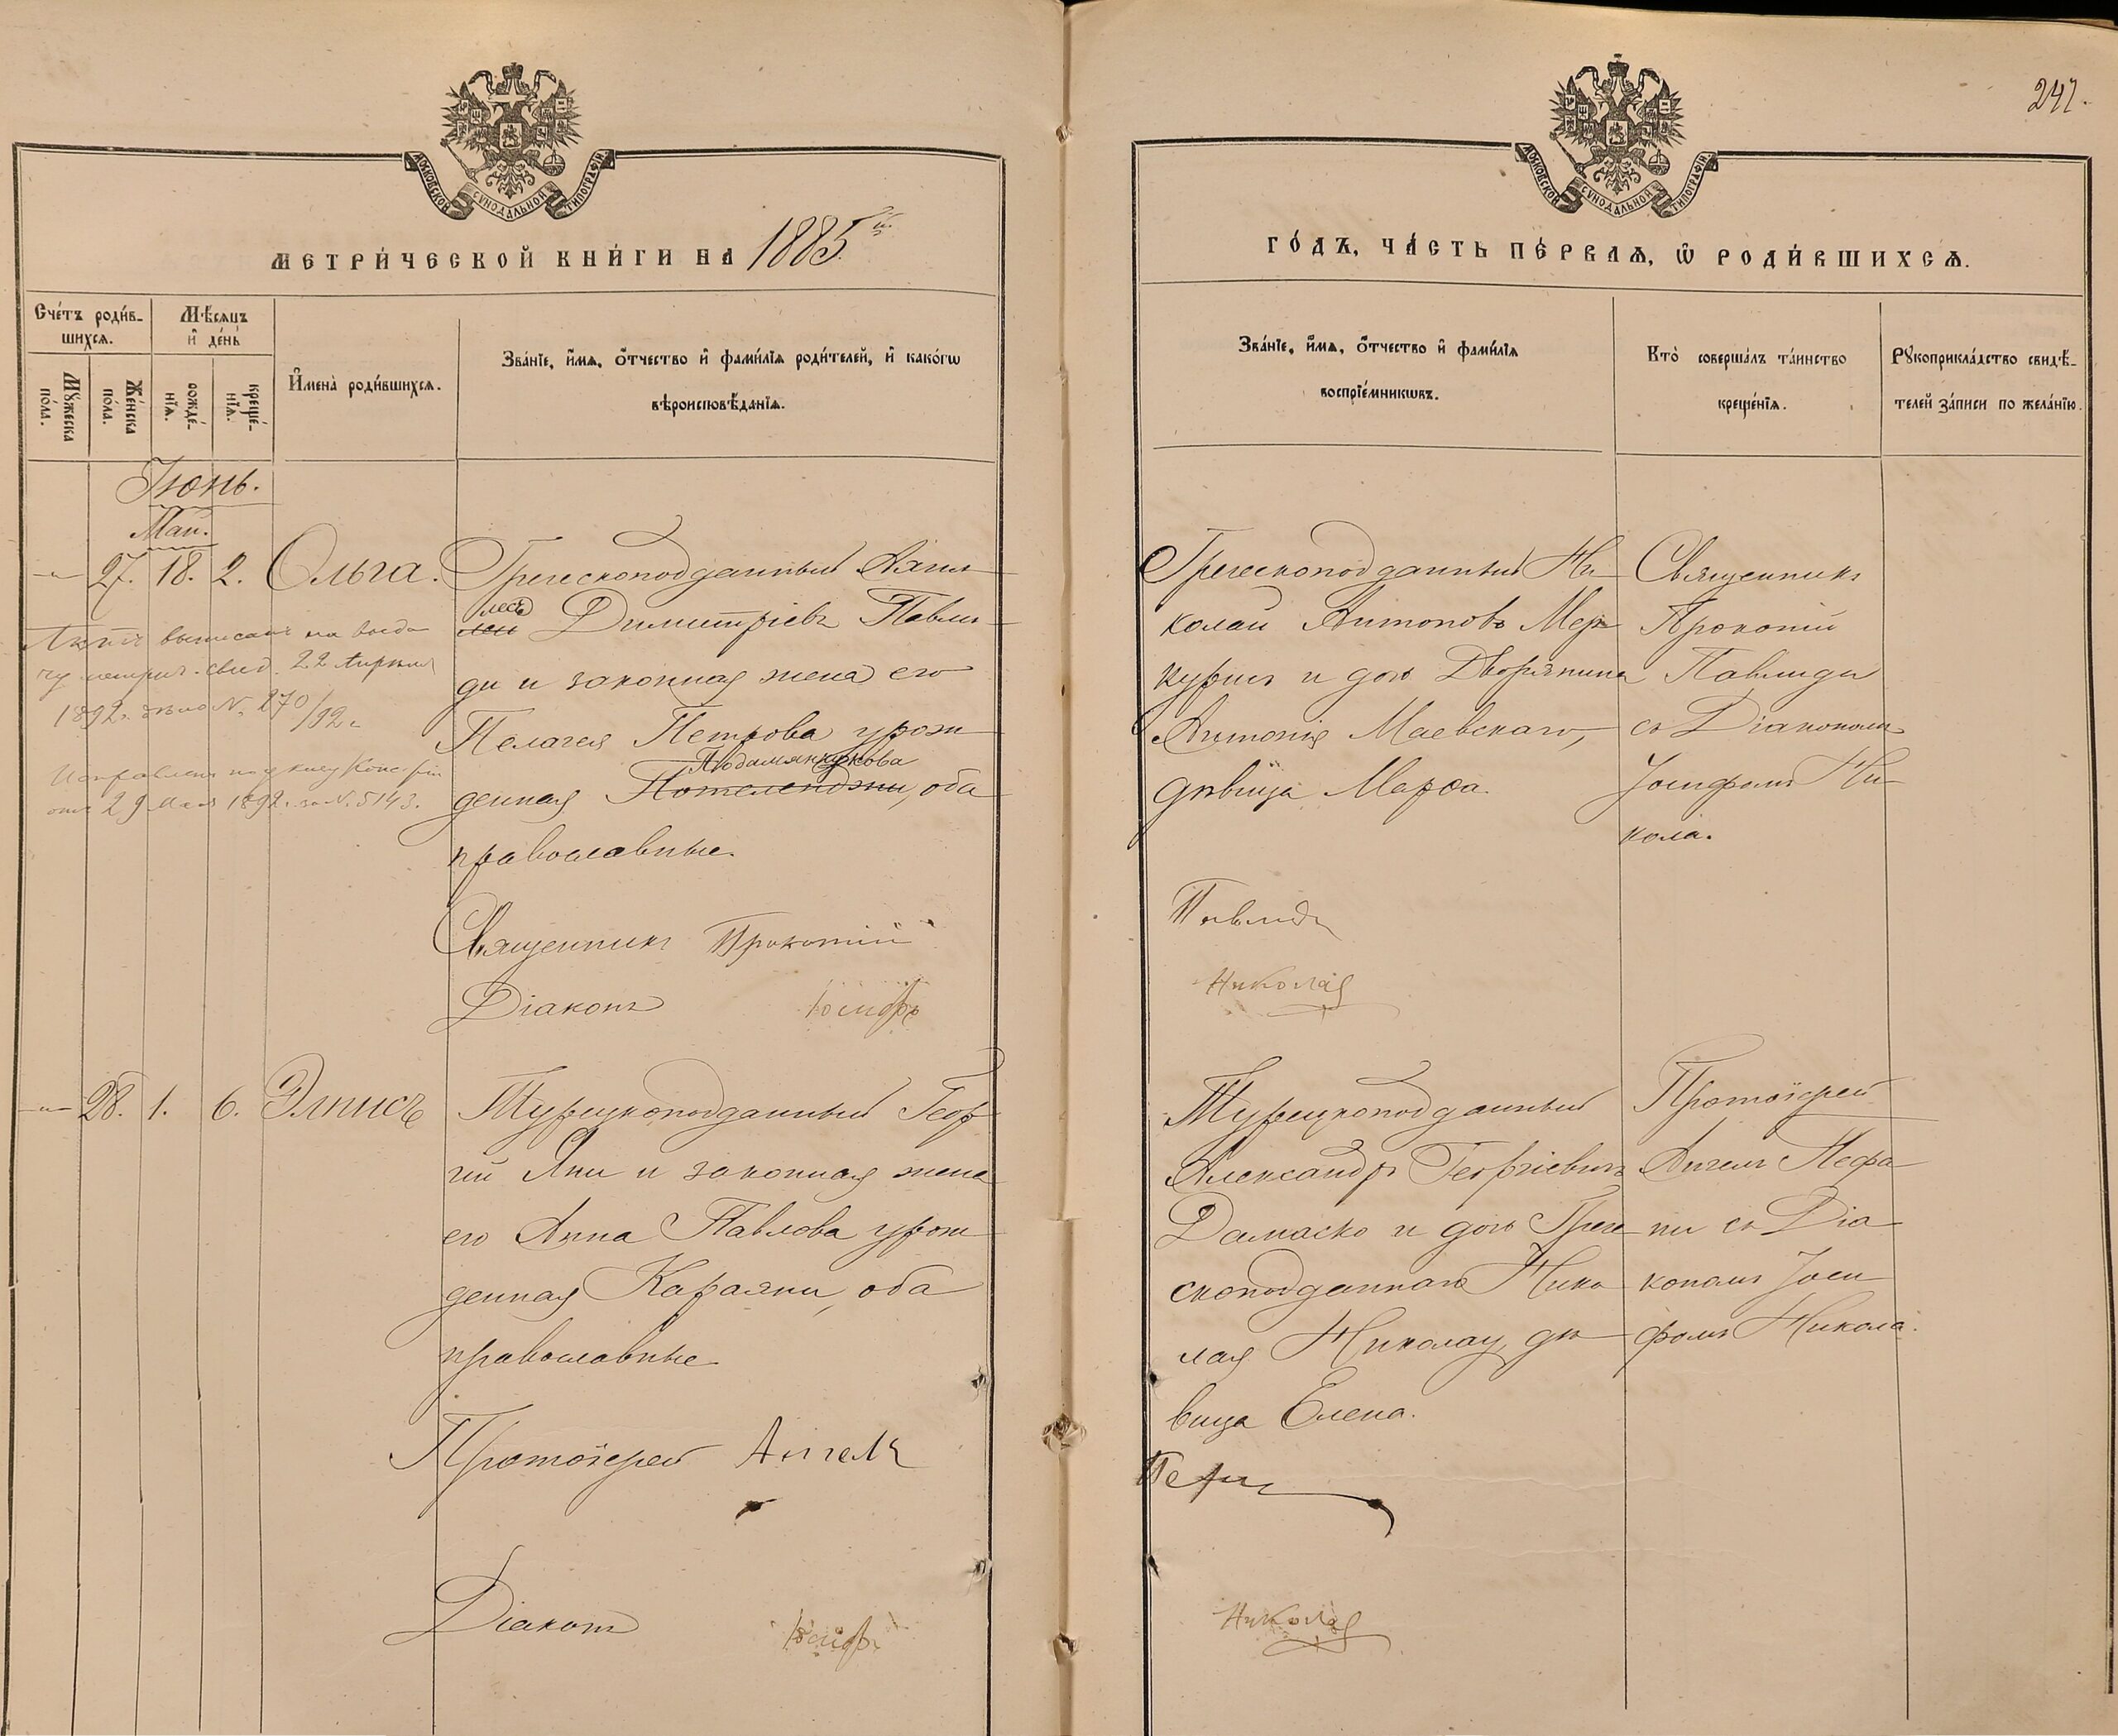 МОСКОВСКОЙ СѴНОДАЛЬНОЙ ТИПОГРАФІИ
МЕТРИ́ЧЕСКОЙ КНИ́ГИ НА 1885й
Счéтъ роди́в-
шихсѧ.
Мѣ́сяцъ
и҆ дéнь
Мꙋ́жеска
пóла.
Жéнска
пóла.
рождé-
нїѧ.
крещé-
нїѧ.
И҆менà роди́вшихсѧ.
Звáнїе, и҆́мѧ, ѻ҆́тчество и҆ фами́лїѧ роди́телей, и҆ какóгѡ
вѣроисповѣ́данїѧ.
Іюнь.
Май.
— 27. 18. 2. Ольга.
Греческоподданный Ахил
лесъ
леи Димитріевъ Павли-
ди и законная жена его
Пелагея Петрова урож
Людамянжукова
денная Потеленджи, оба
православные.
Актъ выписанъ на выда
чу метрич. свид. 22 Апрѣля
1892 г. дѣло №, 270/92 г.
Исправлено по указу Конс-ріи
отъ 29 Мая 1892 г. за №. 5143.
Священникъ Прокопій
Діаконъ Іосифъ
— 28. 1. 6. Элписъ
Турецкоподданный Геор
гій Яни и законная жена
его Анна Павлова урож
денная Караяни, оба
православные
Протоіерей Ангелъ
Діаконъ Іосифъ
241.
МОСКОВСКОЙ СѴНОДАЛЬНОЙ ТИПОГРАФІИ
ГО́ДЪ, ЧА́СТЬ ПЕ́РВАѦ, Ѽ РОДИ́ВШИХСѦ.
Звáнїе, и҆́мѧ, ѻ҆́тчество и҆ фами́лїѧ
воспрїéмникѡвъ.
Ктò совершáлъ тáинство
крещéнїѧ.
Рꙋкоприклáдство свидѣ́-
телей зáписи по желáнїю.
Греческоподданный Ни
колай Антоновъ Мер
курис и дочь Дворянина
Антонія Маевскаго,
дѣвица Марѳа.
Священникъ
Прокопій
Павлиди
съ Діакономъ
Іосифомъ Ни-
кола.
Павлиди
Николая
Турецкоподданный
Александръ Георгіевичъ
Дамаско и дочь Грече
скоподданнаго Нико
лая Николау, дѣ
вица Елена.
Протоіерей
Ангелъ Пефа
ни съ Діа
кономъ Іоси
фомъ Никола.
Николая